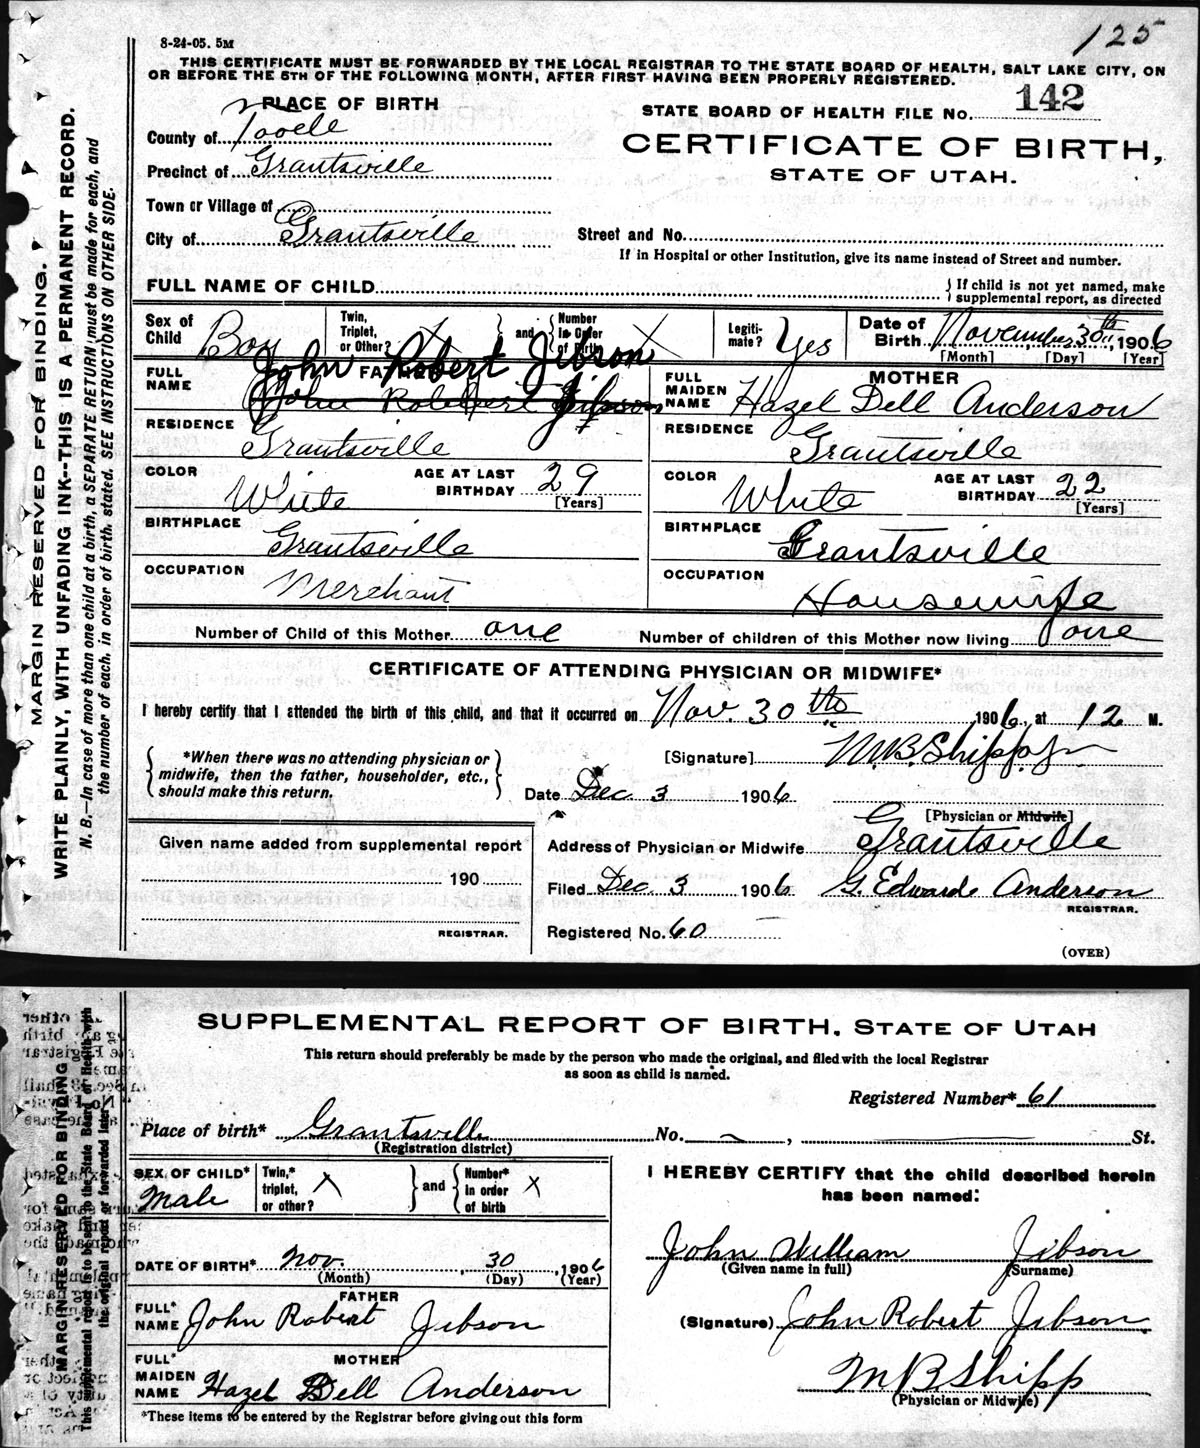 8-24-05. 5M
125
THIS CERTIFICATE MUST BE FORWARDED BY THE LOCAL REGISTRAR TO THE STATE BOARD OF HEALTH, SALT LAKE CITY, ON
OR BEFORE THE 5TH OF THE FOLLOWING MONTH, AFTER FIRST HAVING BEEN PROPERLY REGISTERED.
PLACE OF BIRTH
STATE BOARD OF HEALTH FILE No. 142
County of Tooele
CERTIFICATE OF BIRTH,
STATE OF UTAH.
Precinct of Grantsville
Town or Village of
City of Grantsville
Street and No.
If in Hospital or other Institution, give its name instead of Street and number.
FULL NAME OF CHILD
{ If child is not yet named, make
supplemental report, as directed
Sex of Child Boy
Twin, Triplet, or Other? X } and { Number in Order of Birth X
Legiti-mate? Yes
Date of Birth November 30th, 1906
[Month] [Day] [Year]
FATHER
FULL NAME John Robert Jibson
John Robert Jibson
MOTHER
FULL MAIDEN NAME Hazel Dell Anderson
RESIDENCE Grantsville
RESIDENCE Grantsville
COLOR White AGE AT LAST BIRTHDAY 29 [Years]
COLOR White AGE AT LAST BIRTHDAY 22 [Years]
BIRTHPLACE Grantsville
BIRTHPLACE Grantsville
OCCUPATION Merchant
OCCUPATION Housewife
Number of Child of this Mother one
Number of children of this Mother now living one
CERTIFICATE OF ATTENDING PHYSICIAN OR MIDWIFE*
I hereby certify that I attended the birth of this child, and that it occurred on Nov. 30th 1906, at 12 M.
{ *When there was no attending physician or
midwife, then the father, householder, etc.,
should make this return. }
[Signature] M.B. Shipp
Date Dec 3 1906
[Physician or Midwife]
Given name added from supplemental report
190
REGISTRAR.
Address of Physician or Midwife Grantsville
Filed Dec 3 1906 G. Edward Anderson
REGISTRAR.
Registered No. 60
(OVER)
MARGIN RESERVED FOR BINDING.
WRITE PLAINLY, WITH UNFADING INK--THIS IS A PERMANENT RECORD.
N. B.—In case of more than one child at a birth, a SEPARATE RETURN must be made for each, and
the number of each, in order of birth, stated. SEE INSTRUCTIONS ON OTHER SIDE.
SUPPLEMENTAL REPORT OF BIRTH, STATE OF UTAH
This return should preferably be made by the person who made the original, and filed with the local Registrar
as soon as child is named.
Registered Number* 61
Place of birth* Grantsville No. , St.
(Registration district)
SEX OF CHILD* Male
Twin,* triplet, or other? X } and { Number* in order of birth X
DATE OF BIRTH* Nov. 30, 1906
(Month) (Day) (Year)
FATHER
FULL* NAME John Robert Jibson
MOTHER
FULL* MAIDEN NAME Hazel Dell Anderson
*These items to be entered by the Registrar before giving out this form
I HEREBY CERTIFY that the child described herein
has been named:
John William Jibson
(Given name in full) (Surname)
(Signature) John Robert Jibson
M B Shipp
(Physician or Midwife)
MARGIN RESERVED FOR BINDING
This supplemental report is to be sent to the State Board of Health with
the original report or forwarded later